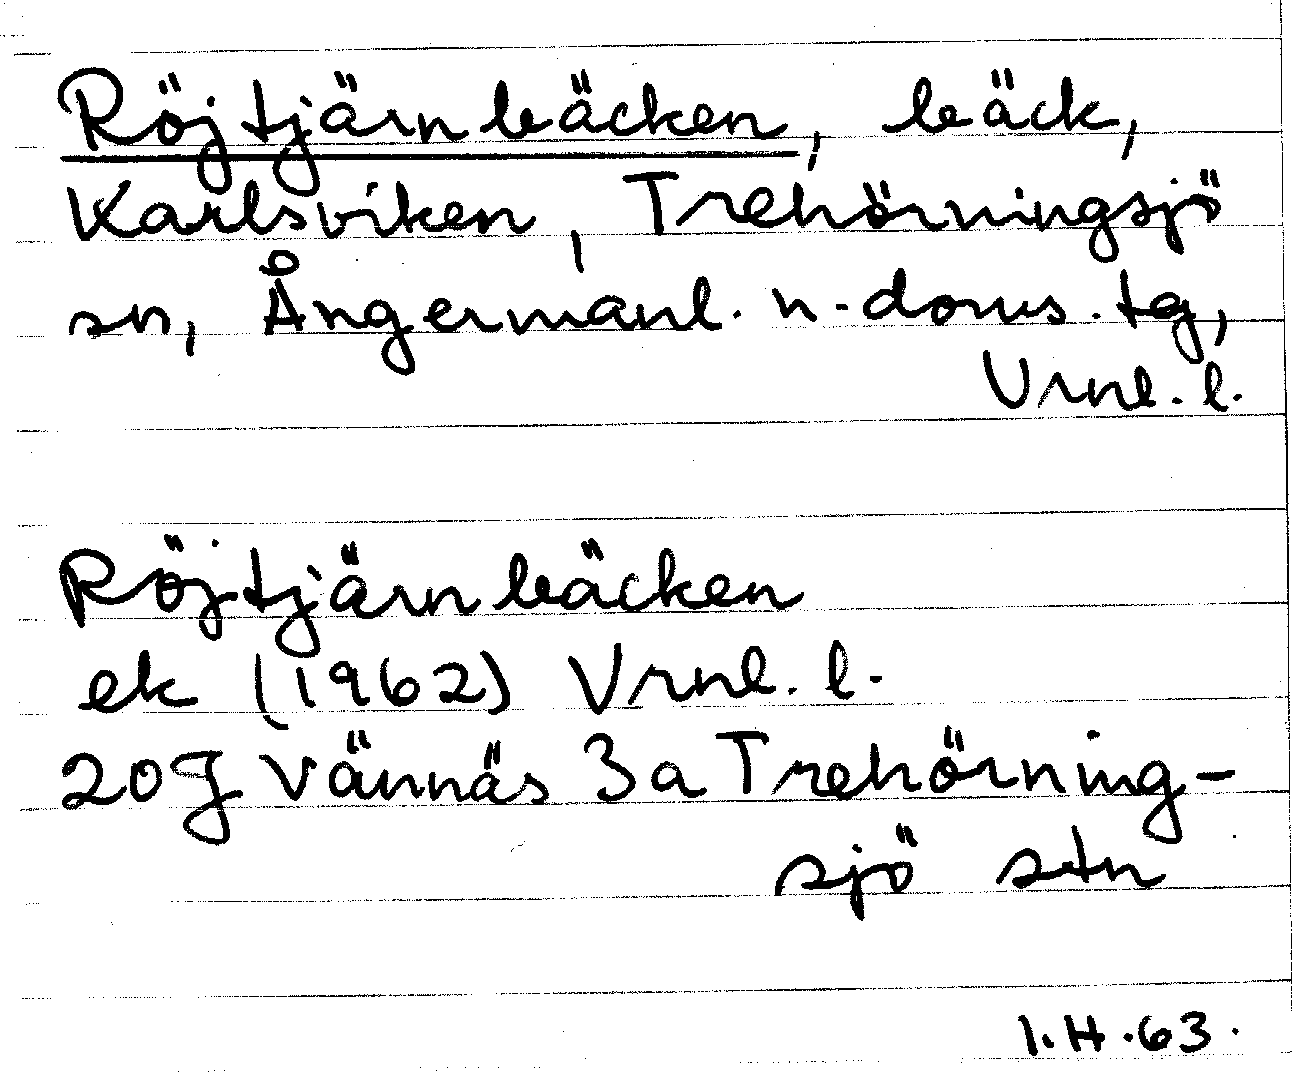 Röjtjärnbäcken, bäck,
Karlsviken, Trehörningsjö
sn, Ångermanl. n. doms. tg,
Vrnl. l.
Röjtjärnbäcken
ek (1962) Vrnl. l.
20J Vännäs 3a Trehörning-
sjö stn
I.H.63.